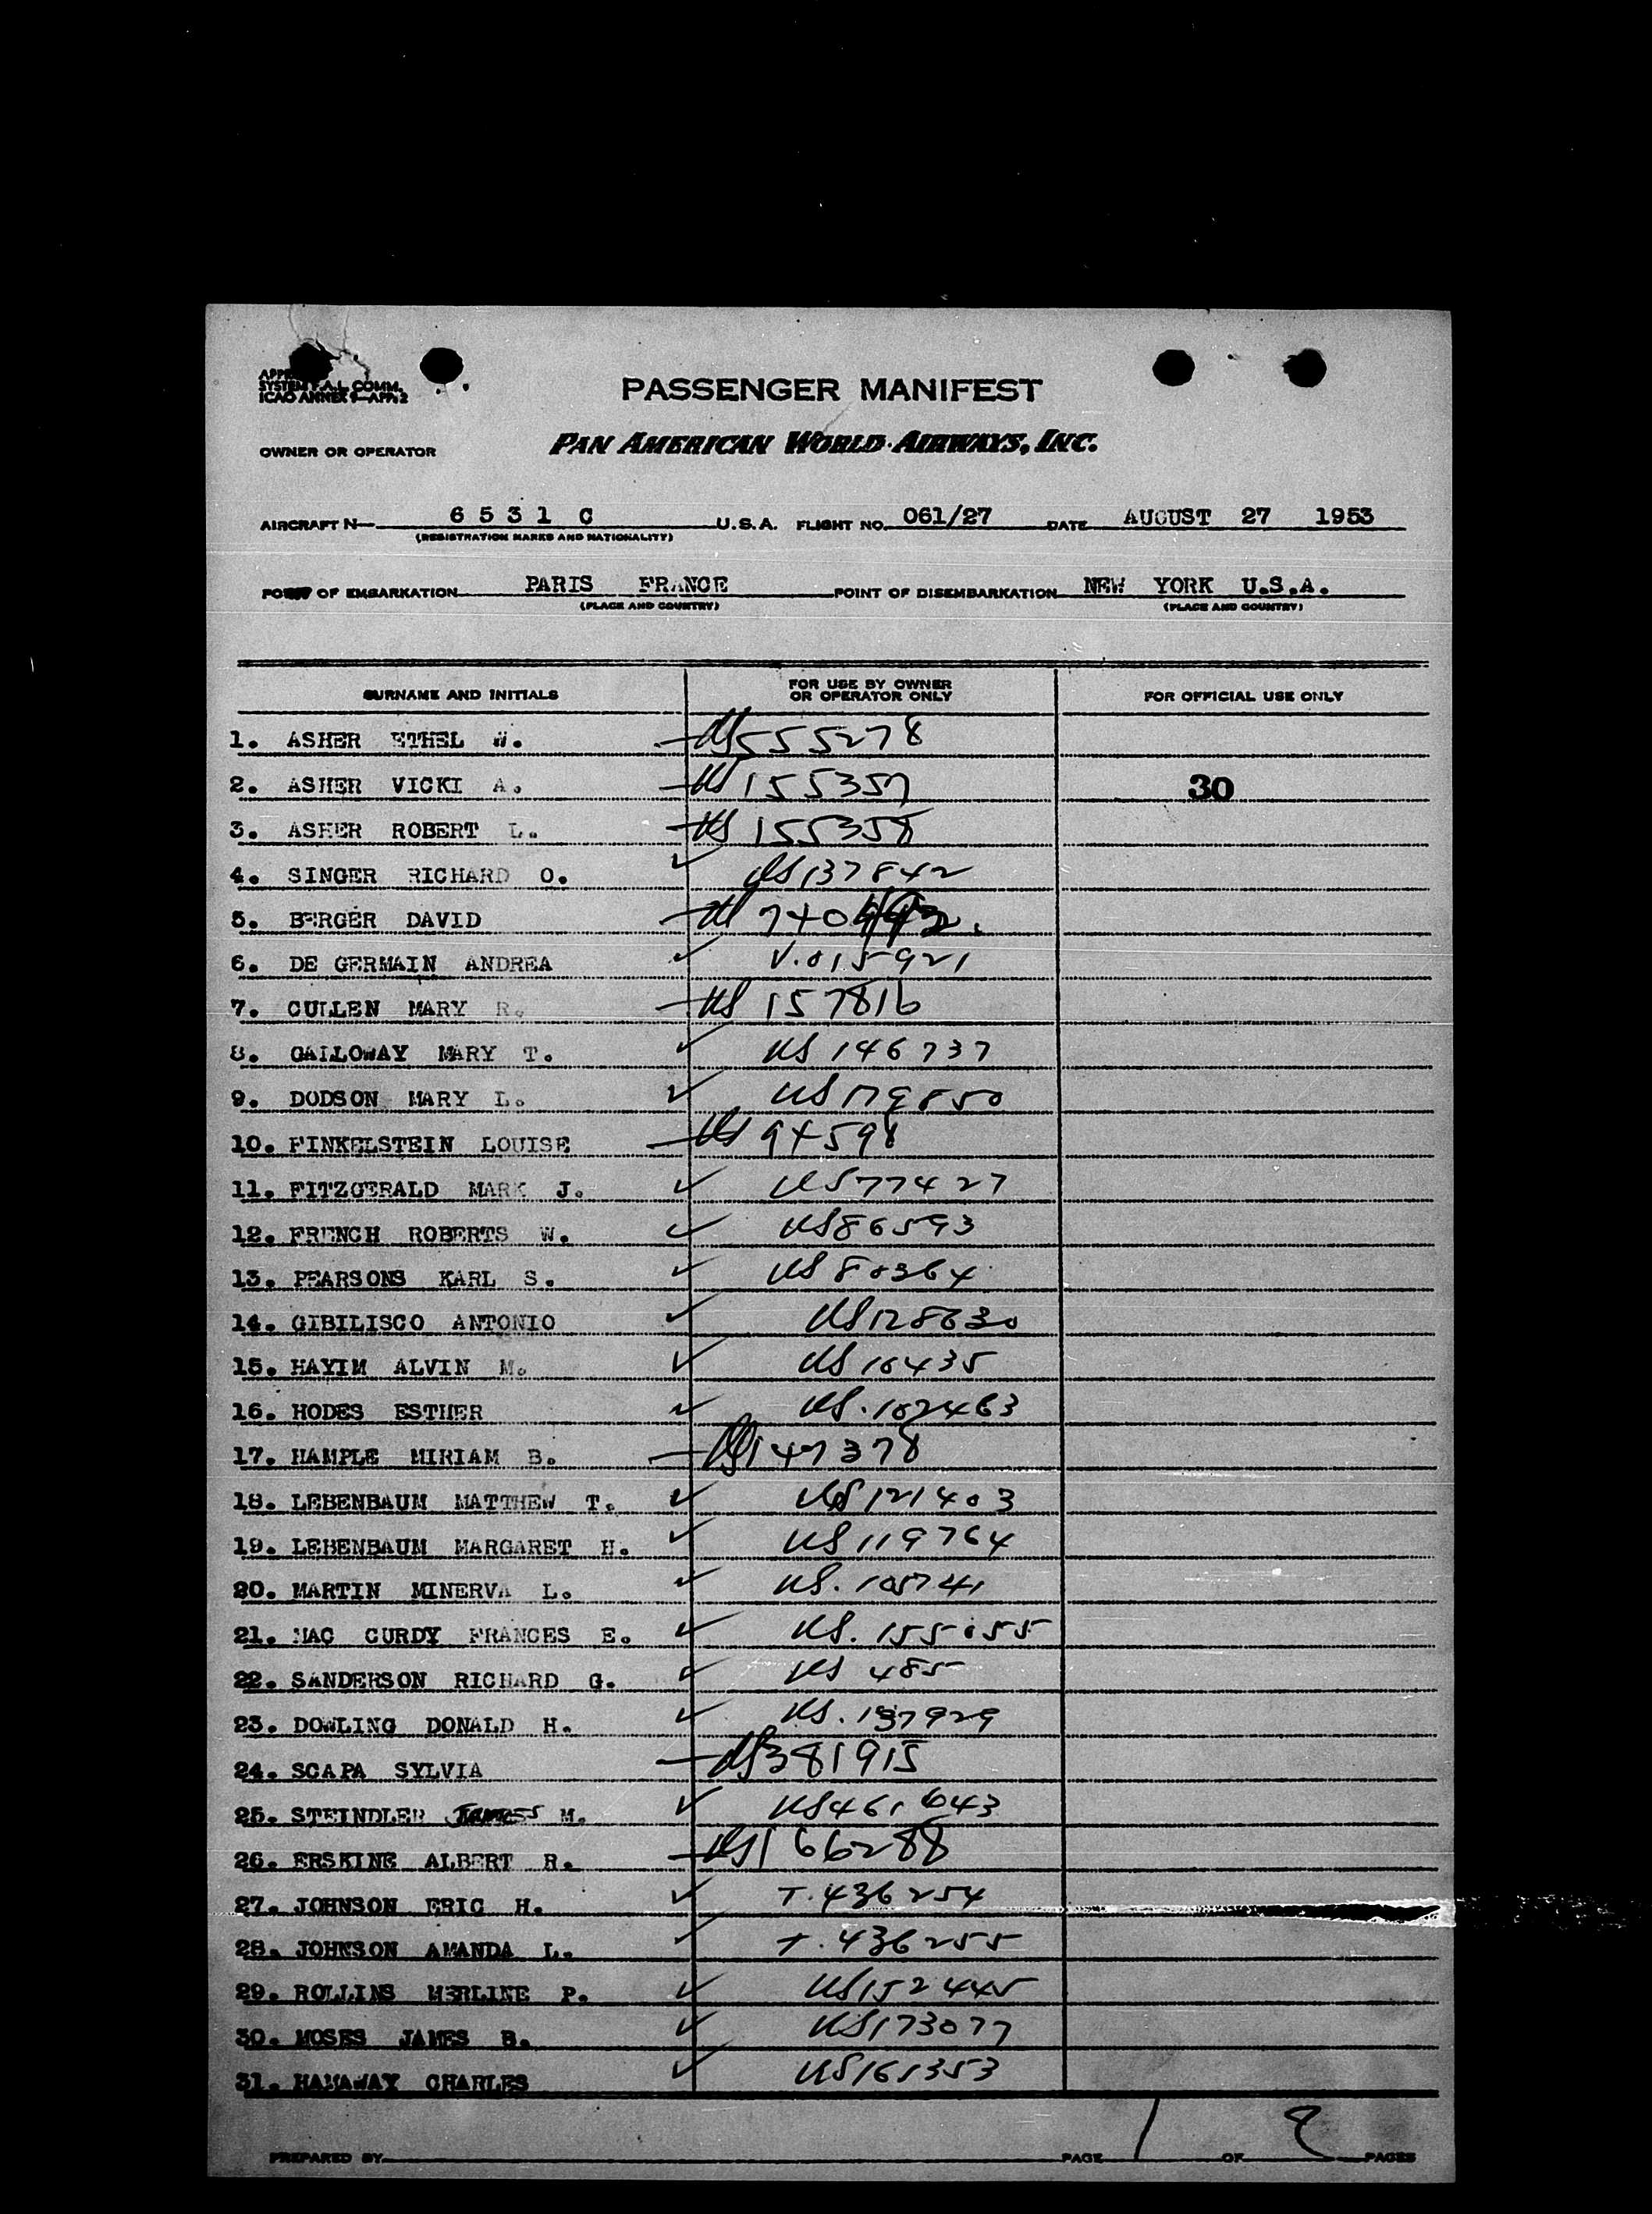 SYSTEM F.A.L. COMM.
ICAO ANNEX 9—APP. 2
PASSENGER MANIFEST
OWNER OR OPERATOR PAN AMERICAN WORLD AIRWAYS, INC.
AIRCRAFT N— 6 5 3 1 C U.S.A. FLIGHT NO. 061/27 DATE AUGUST 27 1953
(REGISTRATION MARKS AND NATIONALITY)
POINT OF EMBARKATION PARIS FRANCE POINT OF DISEMBARKATION NEW YORK U.S.A.
(PLACE AND COUNTRY) (PLACE AND COUNTRY)
SURNAME AND INITIALS FOR USE BY OWNER OR OPERATOR ONLY FOR OFFICIAL USE ONLY
1. ASHER ETHEL W. US 555278
2. ASHER VICKI A. US 155357 30
3. ASHER ROBERT L. US 155358
4. SINGER RICHARD O. US 137842
5. BERGER DAVID
6. DE GERMAIN ANDREA V.015921
7. CULLEN MARY R. US 157816
8. GALLOWAY MARY T. US 146737
9. DODSON MARY L. US 179850
10. FINKELSTEIN LOUISE US 94598
11. FITZGERALD MARK J. US 77427
12. FRENCH ROBERTS W. US 86593
13. PEARSONS KARL S. US 80364
14. GIBILISCO ANTONIO US 128630
15. HAYIM ALVIN M. US 10435
16. HODES ESTHER US. 102463
17. HAMPLE MIRIAM B. US 147378
18. LEBENBAUM MATTHEW T. US 121403
19. LEBENBAUM MARGARET H. US 119764
20. MARTIN MINERVA L. US. 105741
21. MAC CURDY FRANCES E. US. 155055
22. SANDERSON RICHARD G. US 485
23. DOWLING DONALD H. US. 137929
24. SCAPA SYLVIA US 381915
25. STEINDLER JAMES M. US 461643
26. ERSKINE ALBERT R. US 166288
27. JOHNSON ERIC H. T. 436254
28. JOHNSON AMANDA L. T. 436255
29. ROLLINS MERLINE P. US 152445
30. MOSES JAMES B. US 173077
31. HANAWAY CHARLES US 161353
PREPARED BY PAGE 1 OF PAGES